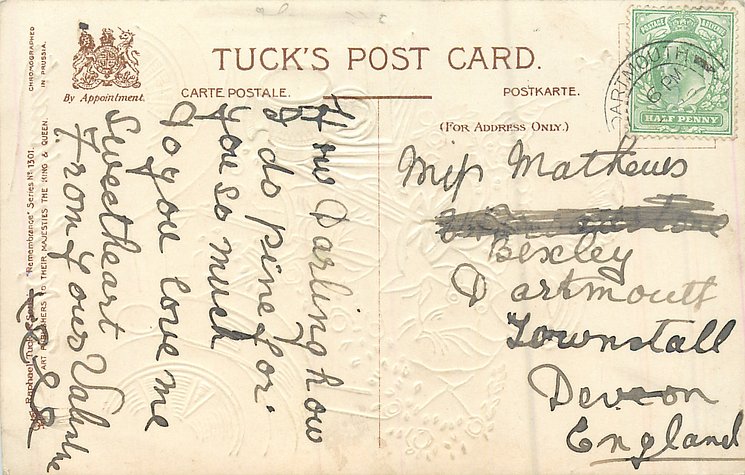 TUCK'S POST CARD.
By Appointment.
CARTE POSTALE.
POSTKARTE.
(FOR ADDRESS ONLY.)
CHROMOGRAPHED
IN PRUSSIA.
"Remembrance" Series No 1301.
ART PUBLISHERS TO THEIR MAJESTIES THE KING & QUEEN.
Raphael Tuck & Sons
POSTAGE
HALF PENNY
DARTMOUTH
6 PM
Darling how
I do pine for
you so much
do you love me
sweetheart
From your
Miss Mathews
Bexley
Dartmouth
Townstall
Devon
England